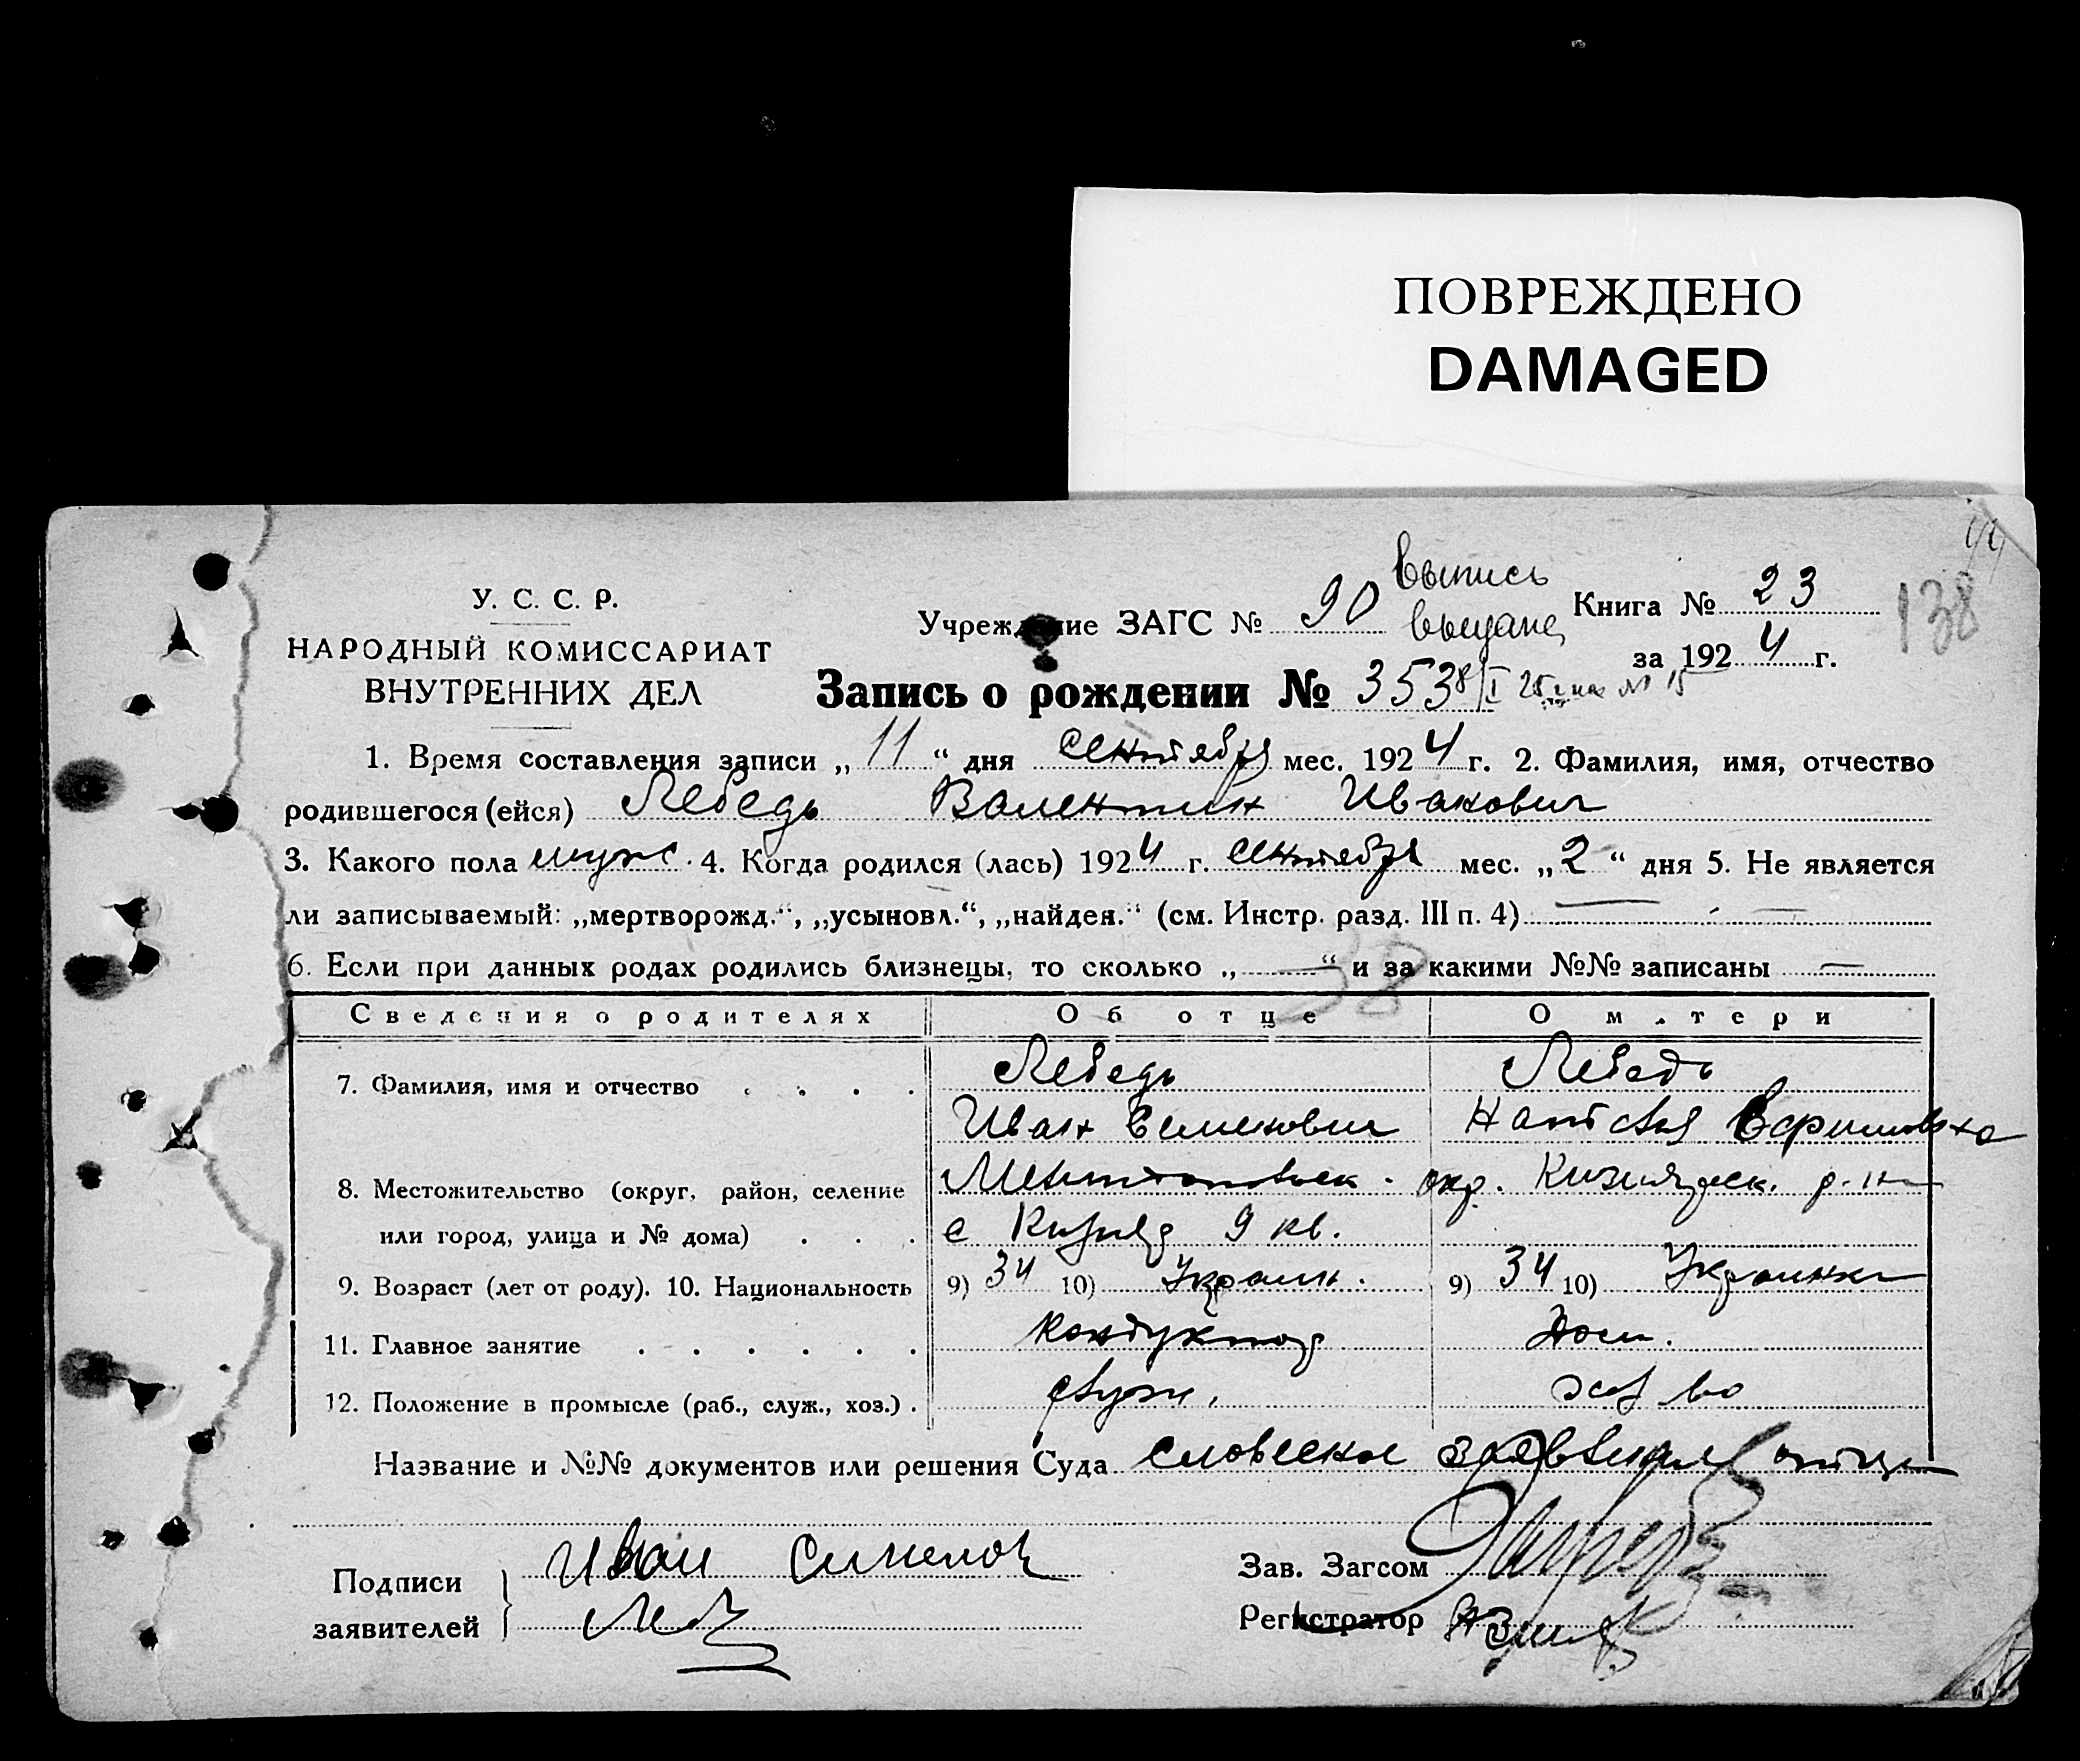 ПОВРЕЖДЕНО
DAMAGED
44
138
У. С. С. Р.
НАРОДНЫЙ КОМИССАРИАТ
ВНУТРЕННИХ ДЕЛ
Учреждение ЗАГС № 90
Выпись
выдана
Книга № 23
за 1924 г.
Запись о рождении № 353 8/I 25 г. № 15
1. Время составления записи „11“ дня сентября мес. 1924 г. 2. Фамилия, имя, отчество
родившегося (ейся) Лебедь Валентин Иванович
3. Какого пола муж. 4. Когда родился (лась) 1924 г. сентября мес. „2“ дня 5. Не является
ли записываемый: „мертворожд.“, „усыновл.“, „найден.“ (см. Инстр. разд. III п. 4) —
6. Если при данных родах родились близнецы, то сколько „—“ и за какими №№ записаны —
38
Сведения о родителях Об отце О матери
7. Фамилия, имя и отчество Лебедь Лебедь
Иван Семенович Наталья
8. Местожительство (округ, район, селение окр. р-н
или город, улица и № дома) с 9 кв.
9. Возраст (лет от роду). 10. Национальность 9) 34 10) Украин. 9) 34 10) Украинка
11. Главное занятие кондуктор Дом.
12. Положение в промысле (раб., служ., хоз.) служ. хоз во
Название и №№ документов или решения Суда словесное заявление отца
Подписи
заявителей
Иван Сименов
Леб
Зав. Загсом
Регистратор